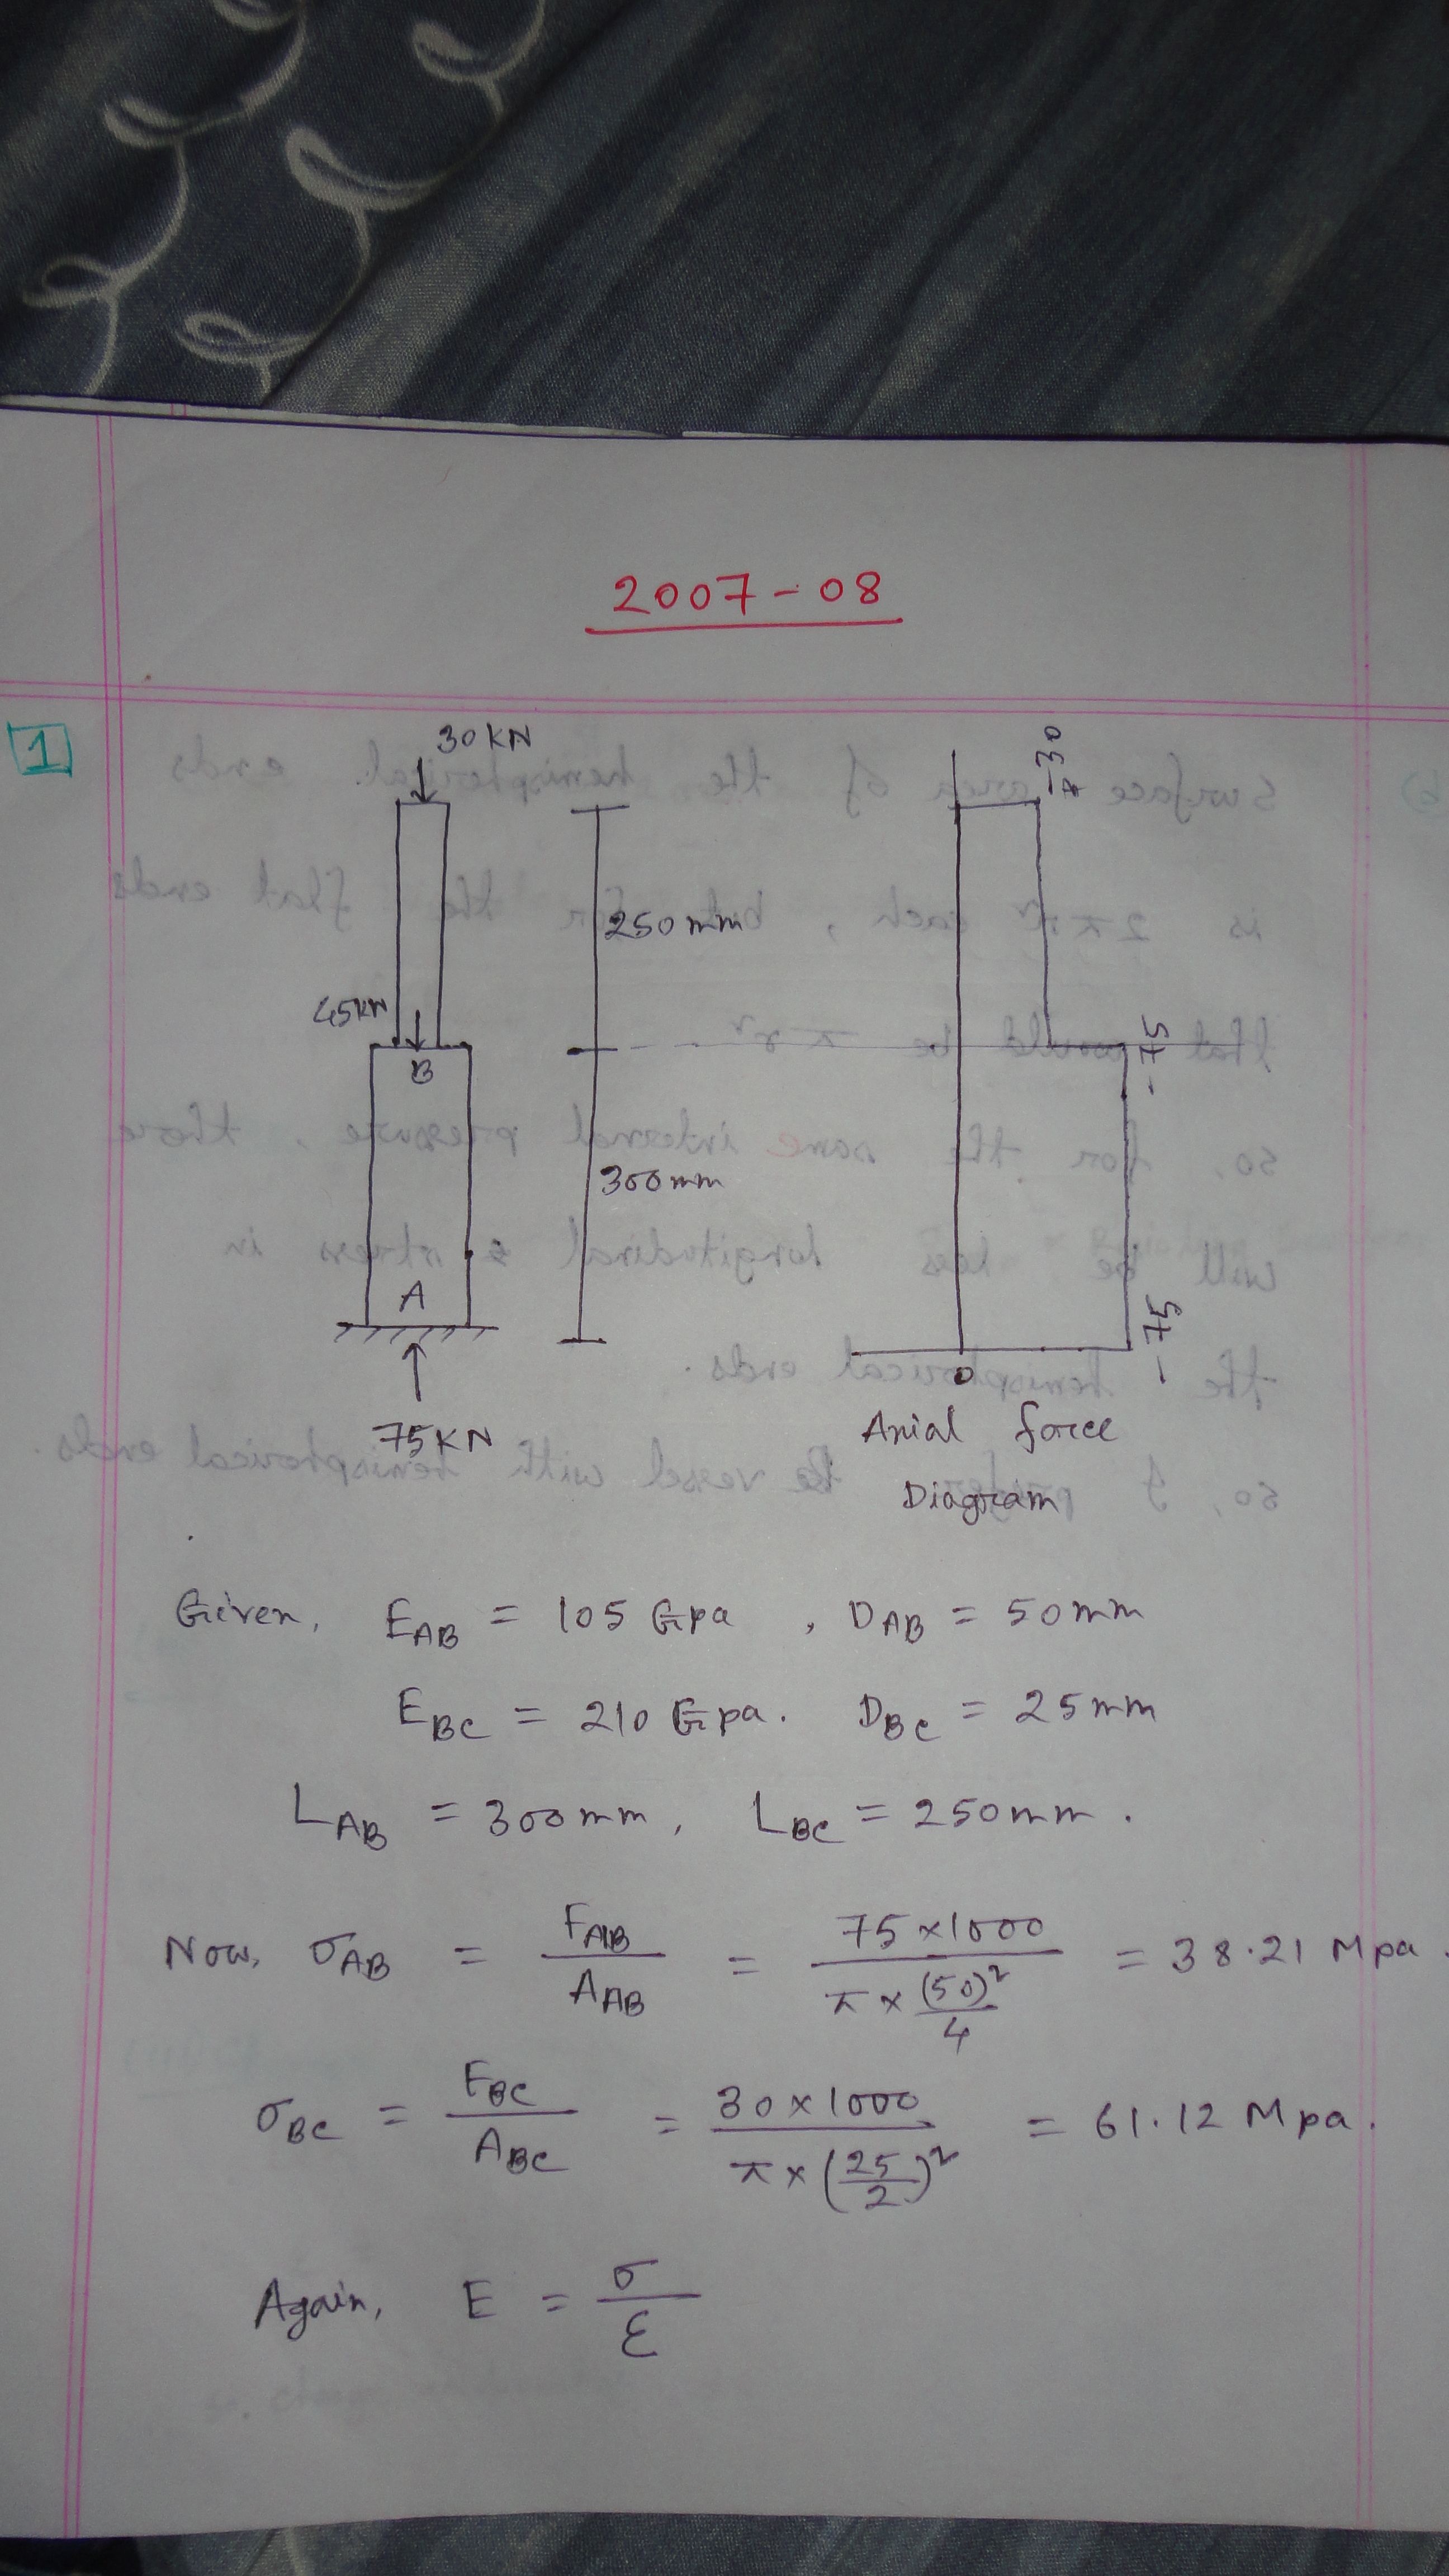 2007-08
1
30 KN
250 mm
45KN
B
300mm
A
75KN
-30
-75
-75
0
Axial force
Diagram
Given, E_AB = 105 Gpa , D_AB = 50 mm
E_BC = 210 Gpa. D_BC = 25 mm
L_AB = 300 mm, L_BC = 250 mm.
Now, σ_AB = F_AB / A_AB = 75×1000 / π × (50)²/4 = 38.21 Mpa.
σ_BC = F_BC / A_BC = 30×1000 / π × (25/2)² = 61.12 Mpa.
Again, E = σ / ε